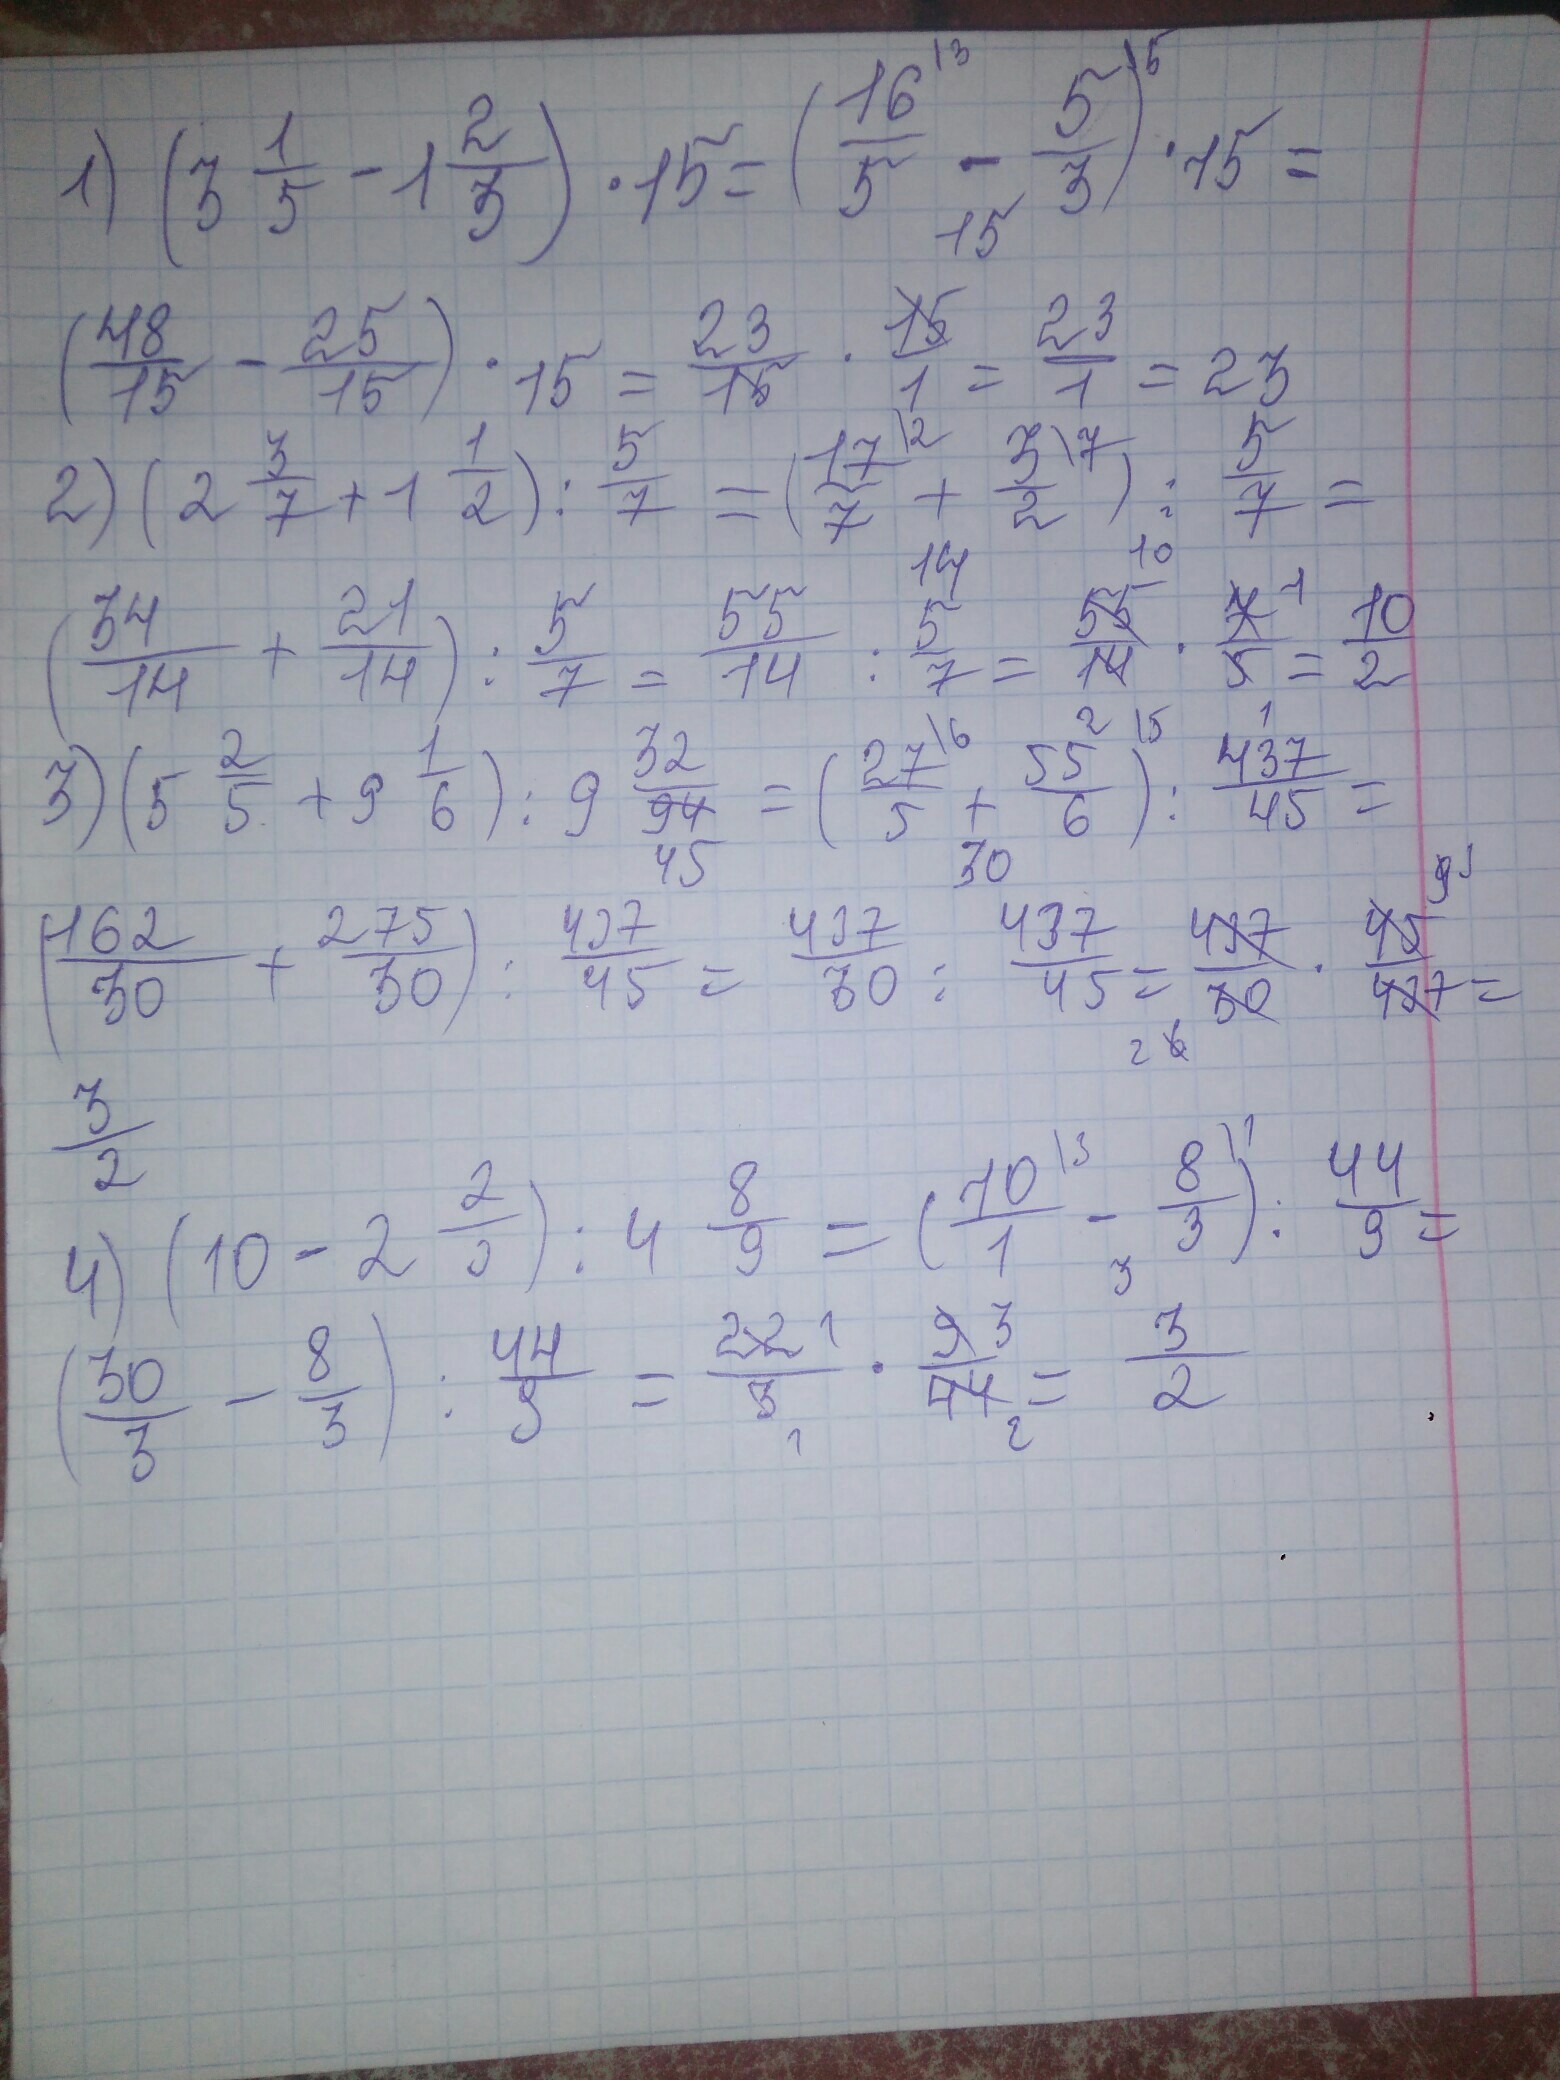 1) (3 1/5 - 1 2/3) · 15 = (16/5 \3 - 5/3 \5) · 15 =
15
(48/15 - 25/15) · 15 = 23/15 · 15/1 = 23/1 = 23
2) (2 3/7 + 1 1/2) : 5/7 = (17/7 \2 + 3/2 \7) : 5/7 =
14
(34/14 + 21/14) : 5/7 = 55/14 : 5/7 = 55 10/14 2 · 7 1/5 1 = 10/2
3) (5 2/5 + 9 1/6) : 9 32/94 45 = (27/5 \6 + 55/6 \5) : 437/45 =
30
(162/30 + 275/30) : 437/45 = 437/30 : 437/45 = 437/30 6 2 · 45 9 3/437 =
3/2
4) (10 - 2 2/3) : 4 8/9 = (10/1 \3 - 8/3 \1) : 44/9 =
3
(30/3 - 8/3) : 44/9 = 22 1/3 1 · 9 3/44 2 = 3/2